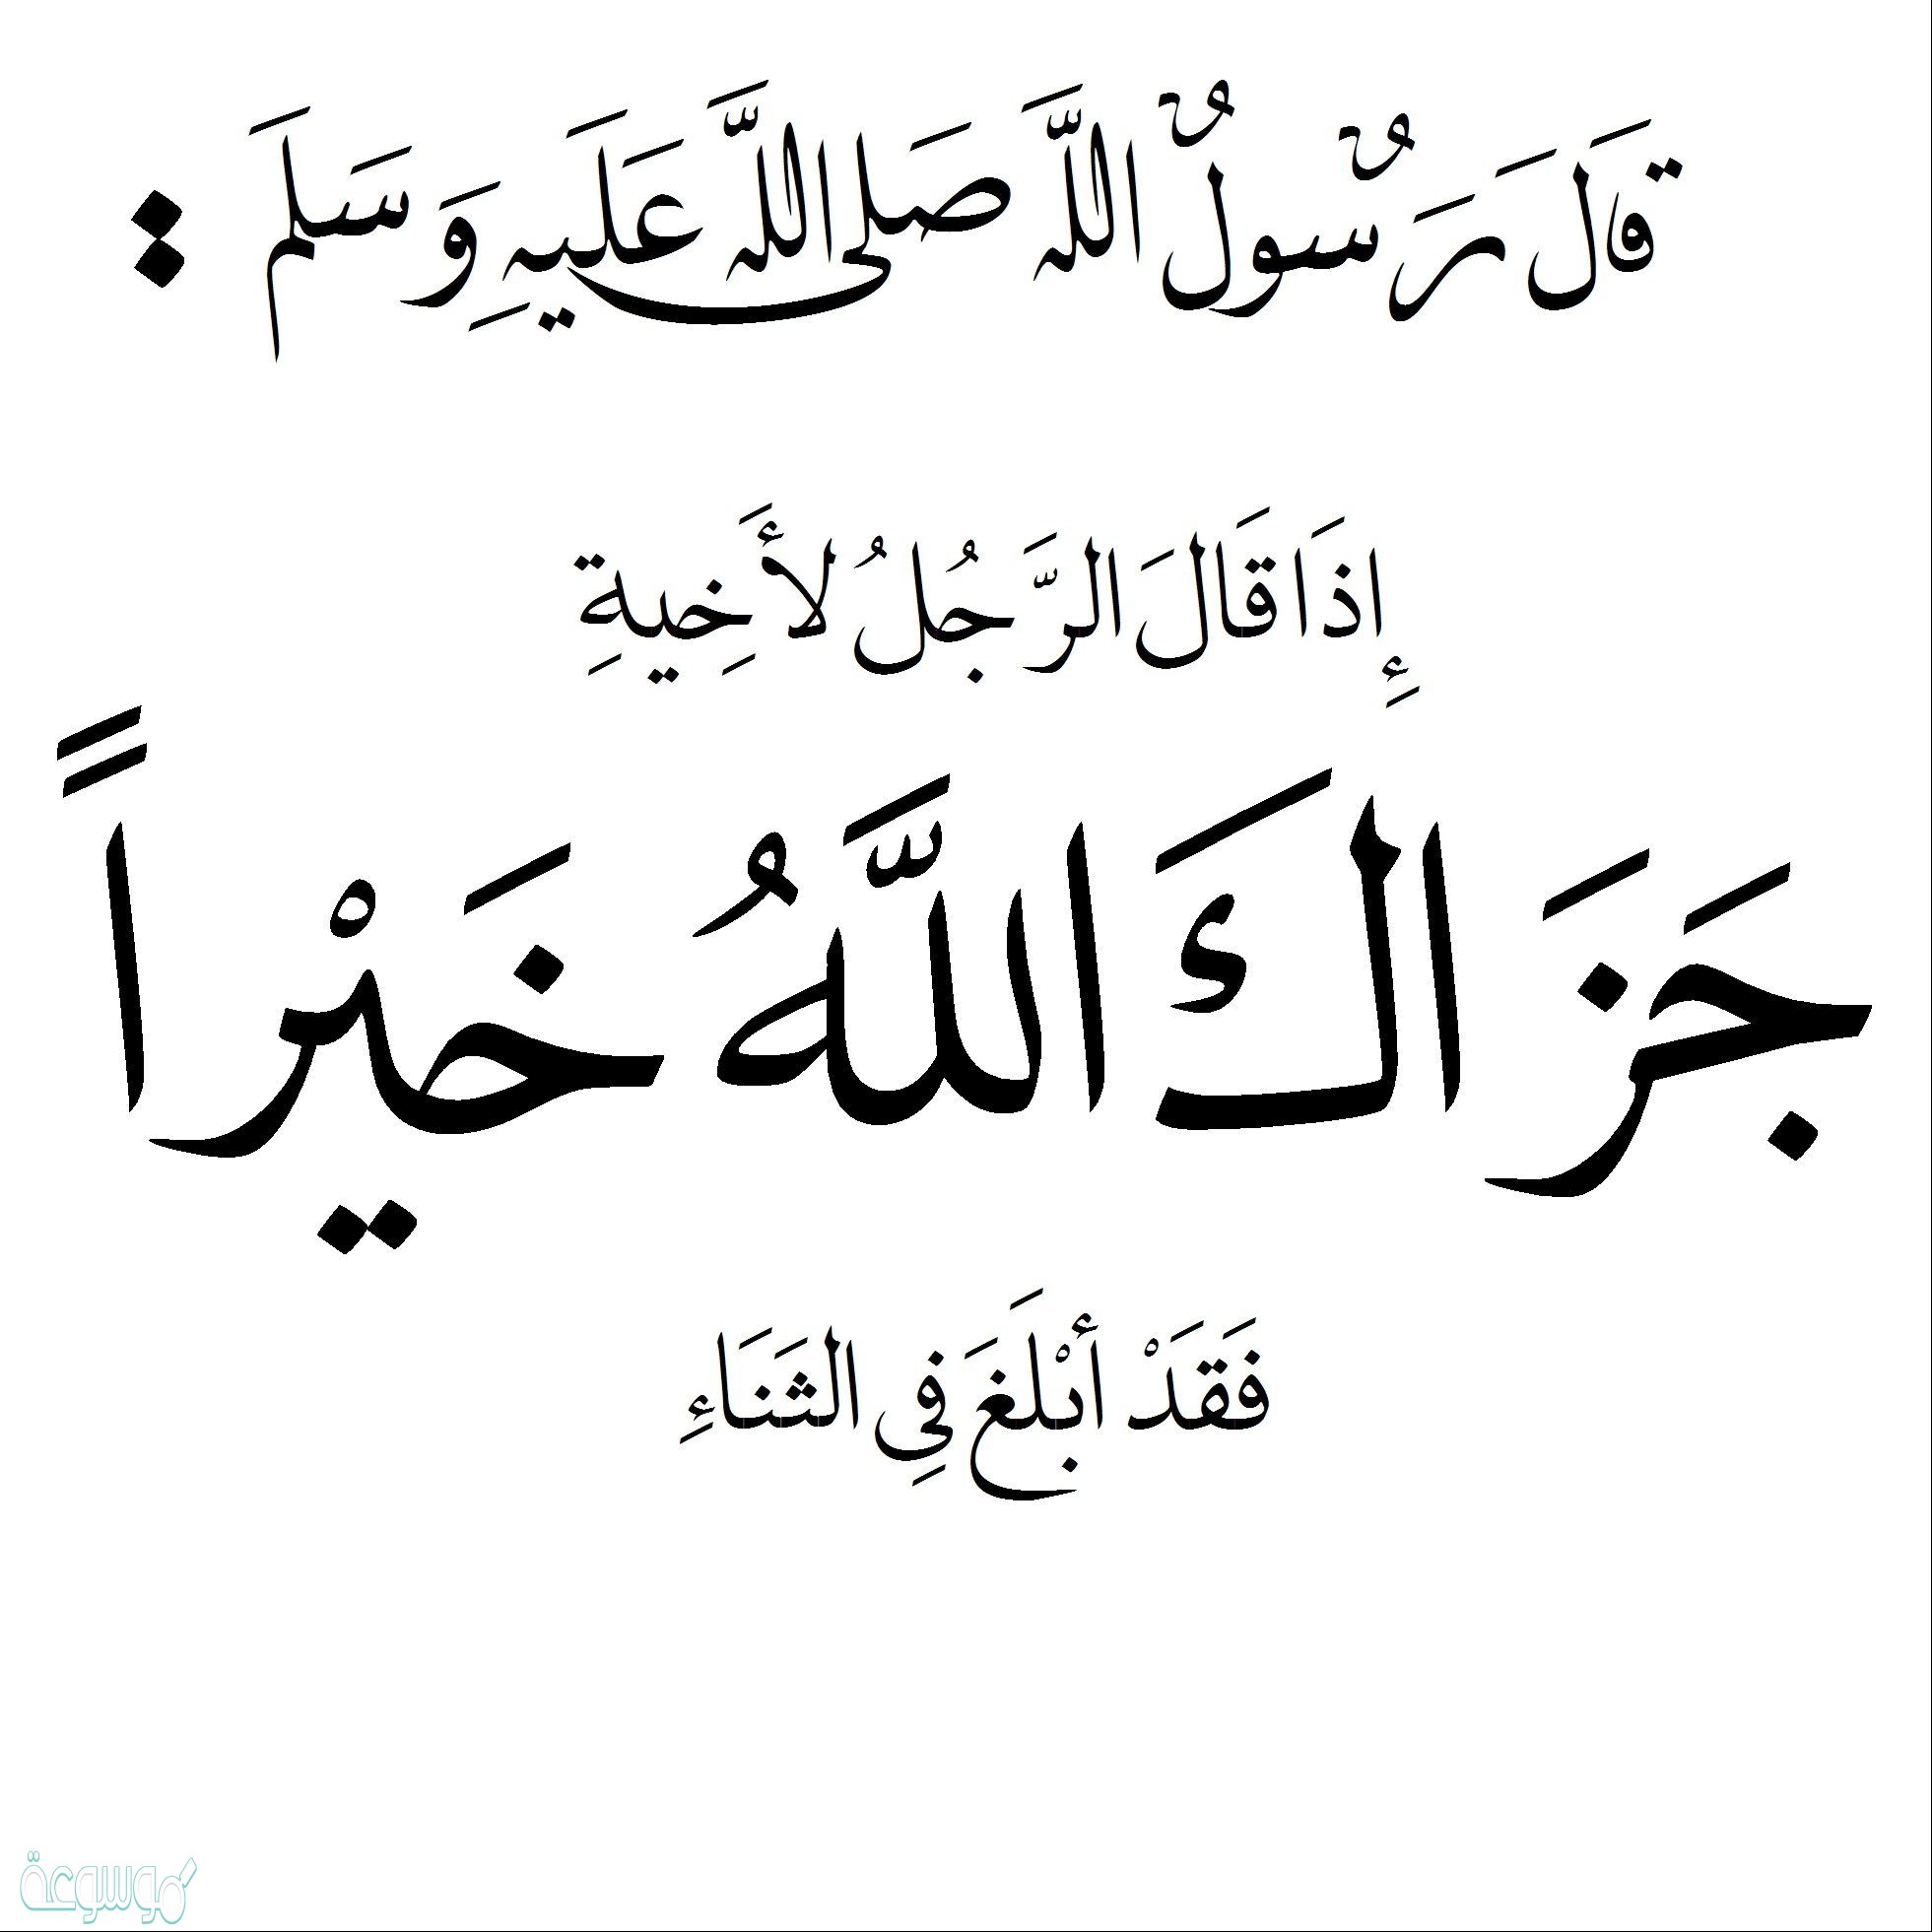 قَالَ رَسُولٌ اللَّه صَلى اللَّه عَلَيهِ وَسَلَم :
إِذَا قَالَ الرَّجُلُ لأَخِيةِ
جَزَاكَ اللَّهُ خَيْراً
فَقَدْ أَبْلَغَ فِي الثَنَاءِ
موسوعة